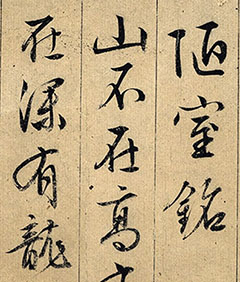 陋室銘
山不在高
在深有龍